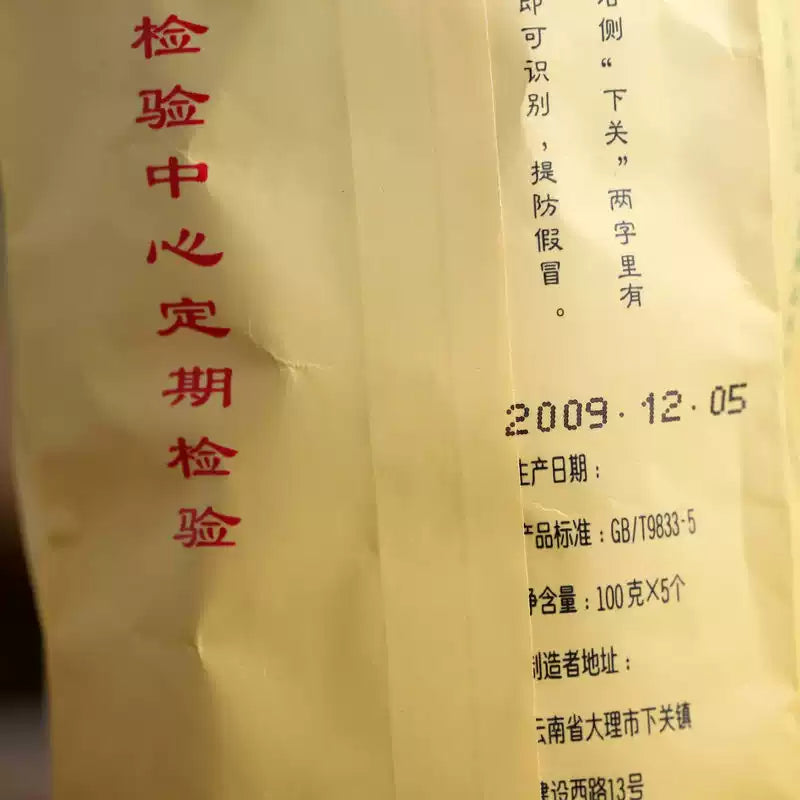 检验中心定期检验
右侧“下关”两字里有
即可识别，提防假冒。
2009.12.05
生产日期：
产品标准：GB/T9833-5
净含量：100克×5个
制造者地址：
云南省大理市下关镇
建设西路13号